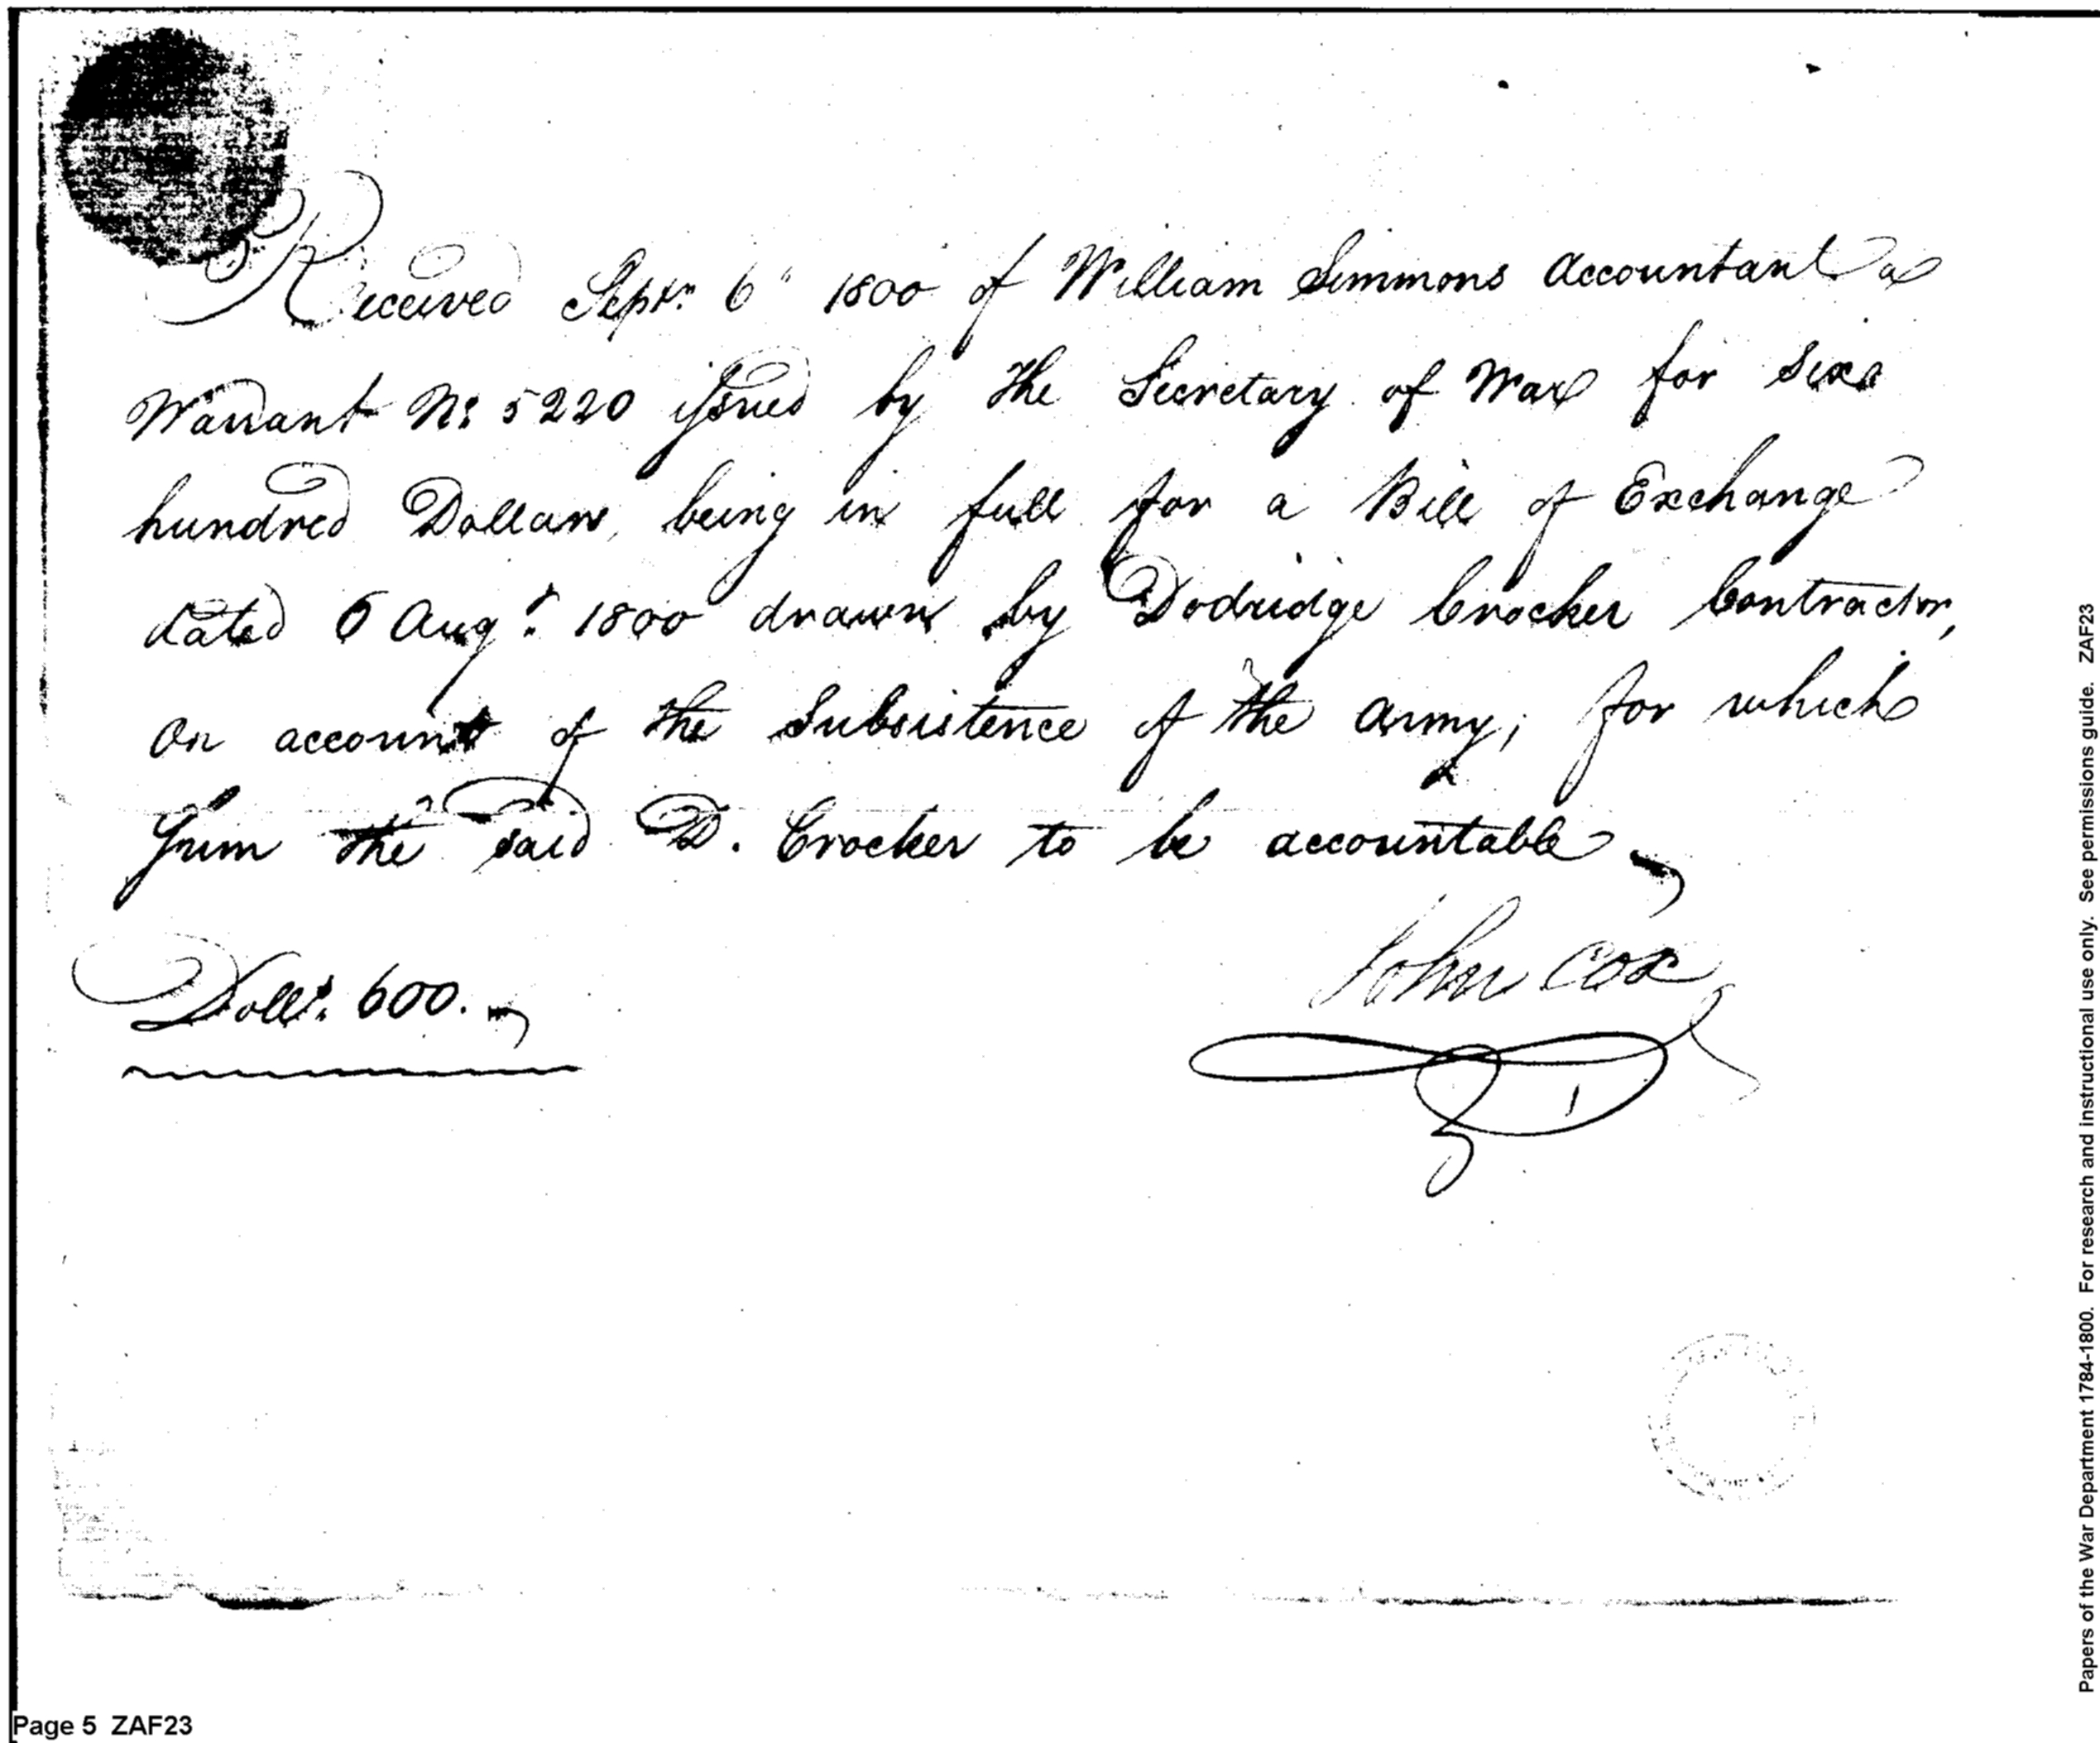 Received Septr. 6" 1800 of William Simmons Accountant a
Warrant No: 5220 issued by the Secretary of War for Six
hundred Dollars, being in full for a Bill of Exchange
dated 6 Augt. 1800 drawn by Dodridge Crocker Contractor,
on account of the Subsistence of the Army; for which
Sum the said D. Crocker to be accountable
John Cox
Dolls. 600.
Page 5 ZAF23
Papers of the War Department 1784-1800. For research and instructional use only. See permissions guide. ZAF23